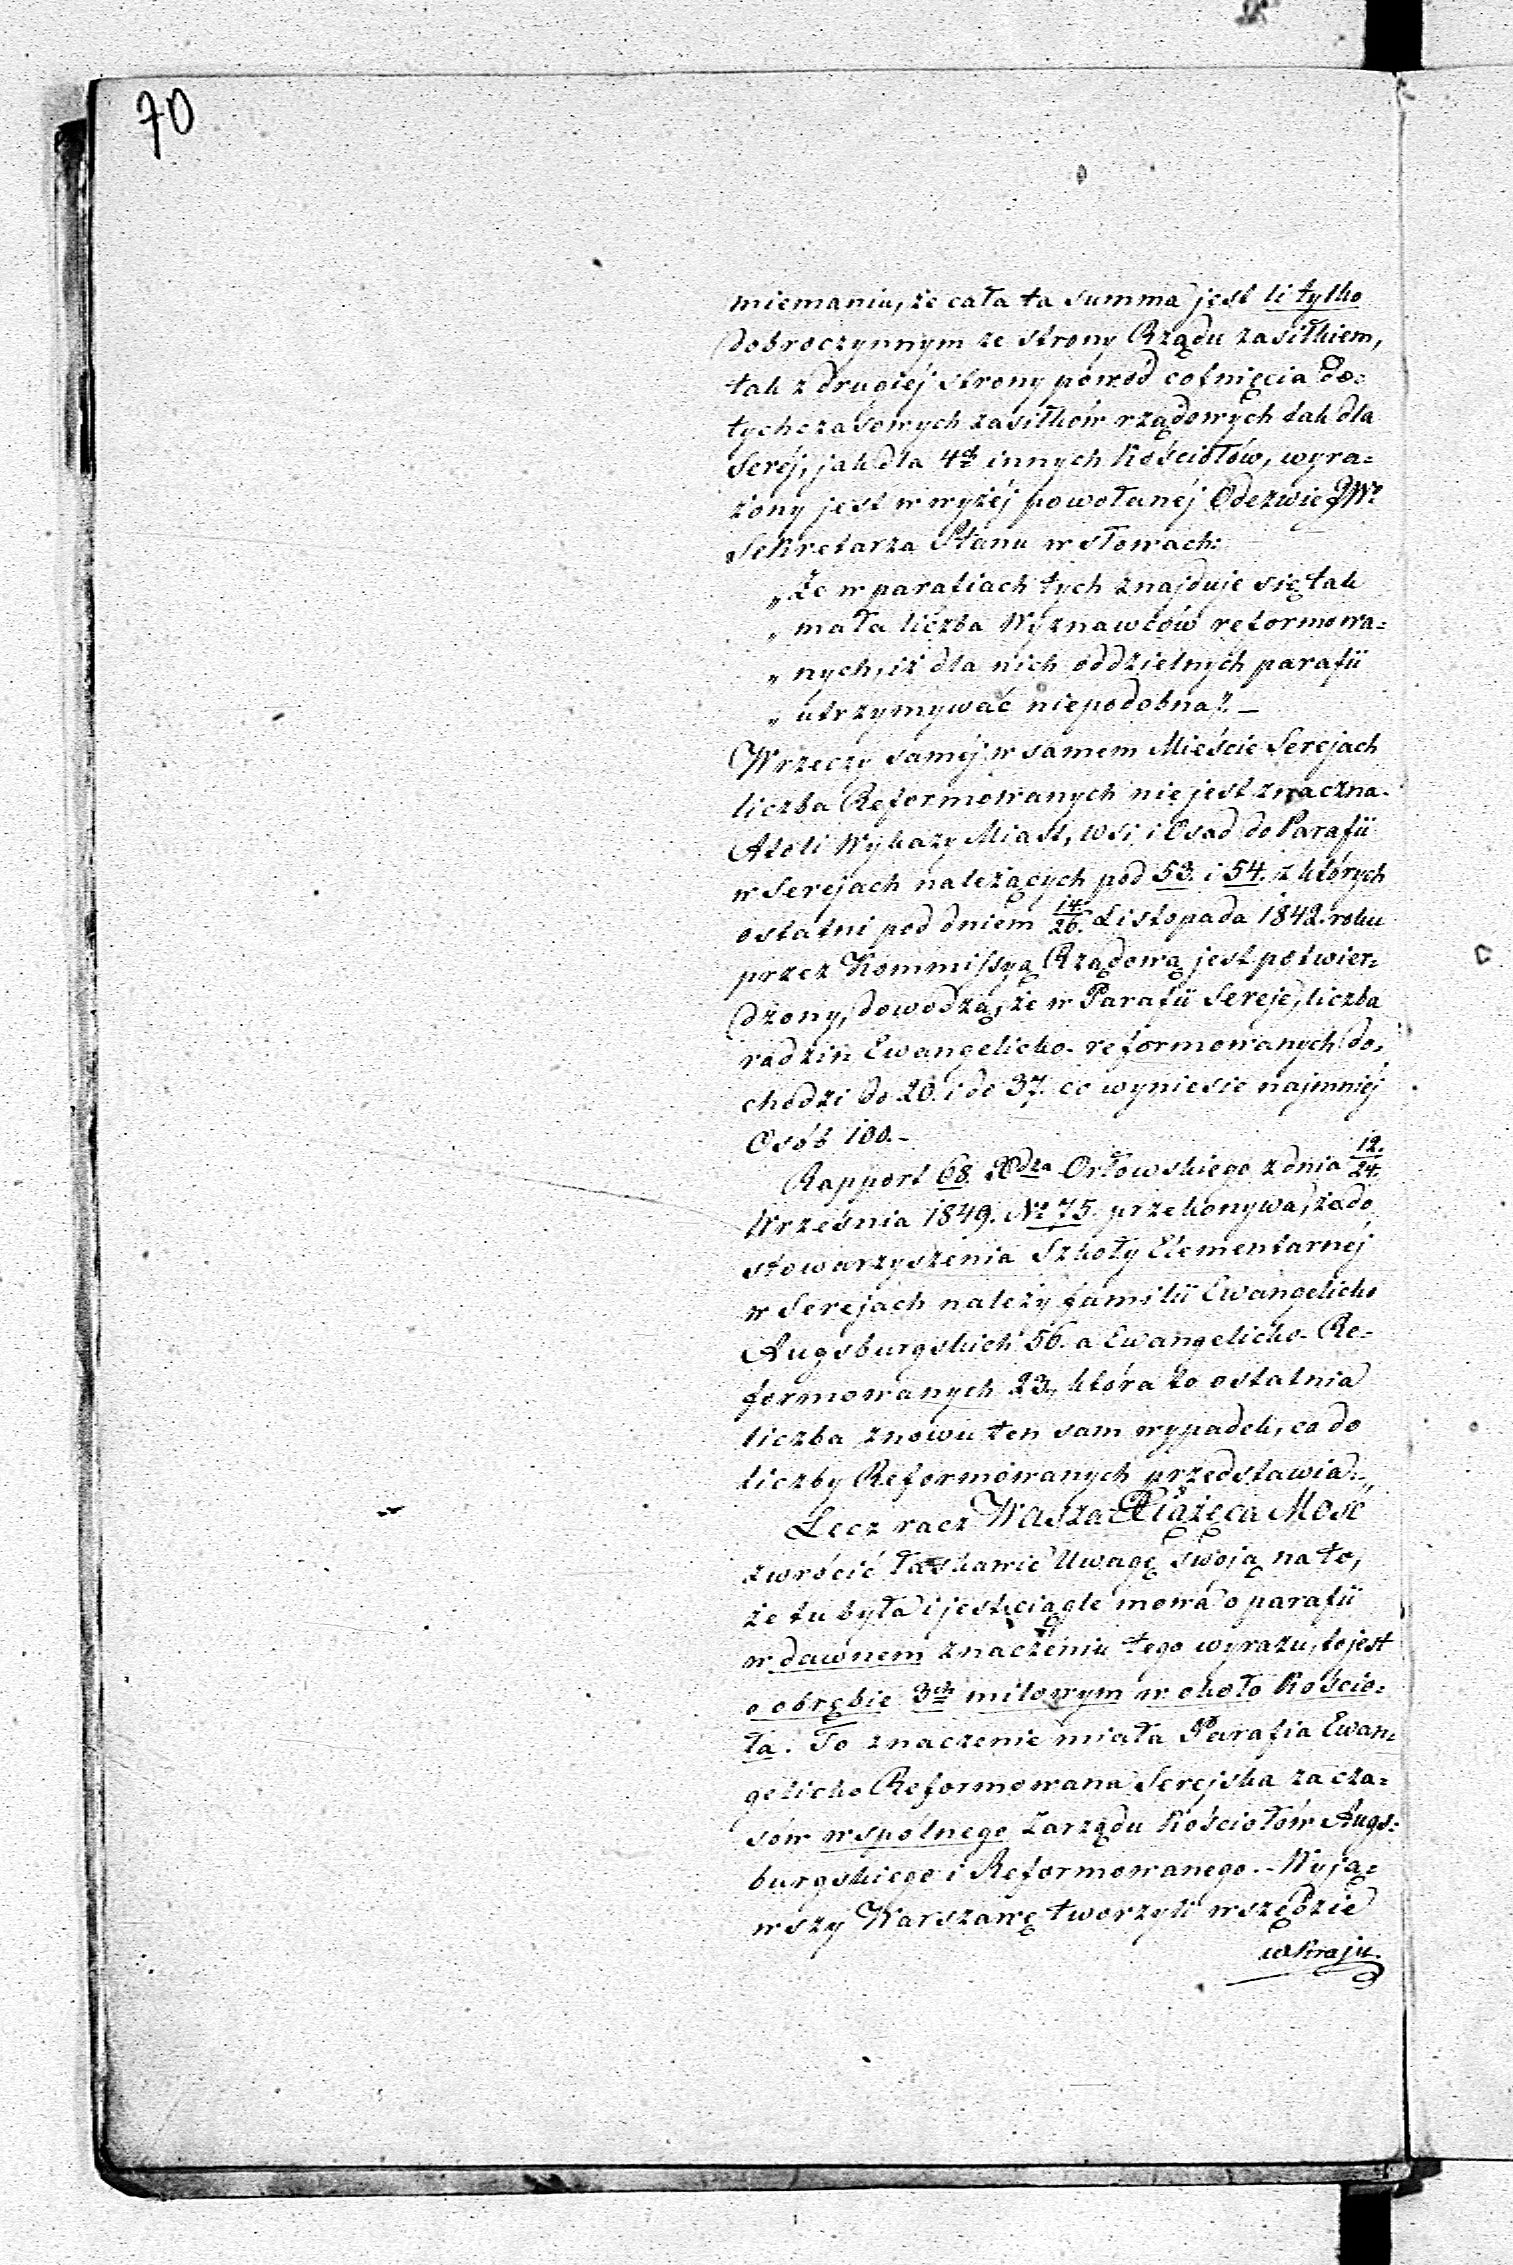 70
miemaniu, że cała ta summa jest li tylko
dobroczynnym ze strony Rządu zasiłkiem,
tak z drugiéj strony powód cofnięcia do=
tychczasowych zasiłków rządowych tak dla
Seréj, jak dla 4ch innych Kościołów, wyra=
żony jest w wyżéj powołanéj Odezwie JWo
Sekretarza Stanu w słowach:
„Że w parafiach tych znajduje się tak
„ mała liczba Wyznawców reformowa=
„ nych, iż dla nich oddzielnych parafii
„ utrzymywać niepodobna”. —
W rzeczy saméj w samem Mieście Serejach
liczba Reformowanych nie jest znaczna.
Atoli Wykazy Miast, wsi i Osad do Parafii
w Serejach należących pod 53. i 54. z których
ostatni pod dniem 14/26. Listopada 1842. roku
przez Kommissyą Rządową jest potwier=
dzony, dowodzą, że w Parafii Sereje, liczba
rodzin Ewangelicko-reformowanych do=
chodzi do 20. i do 37. co wyniesie najmniéj
Osób 100.-
Rapport 68. Xdza Orłowskiego z dnia 12./24.
Września 1849. No 75. przekonywa, że do
stowarzyszenia Szkoły Elementarnéj
w Serejach należy familii Ewangelicko
Augsburgskich 56. a Ewangelicko-Re=
formowanych 23., która to ostatnia
liczba znowu ten sam wypadek, co do
liczby Reformowanych przedstawia.
Lecz racz Wasza Xiążęca Mość
zwrócić łaskawie Uwagę swoją na to,
że tu była i jest ciągle mowa o parafii
w dawnem znaczeniu tego wyrazu, to jest
o obrębie 3ch milowym w około Kościo=
ła. To znaczenie miała Parafia Ewan=
gelicko Reformowana Serejska za cza=
sów wspólnego Zarządu Kościołów Augs=
burgskiego i Reformowanego. - Wyją=
wszy Warszawę tworzyli wszędzie
w Kraju.